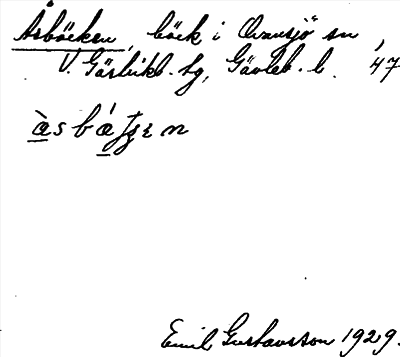 Åsbäcken, bäck i Ovansjö sn,
V. Gästrikl. tg, Gävleb. l. '47
Emil Gustavsson 1929.